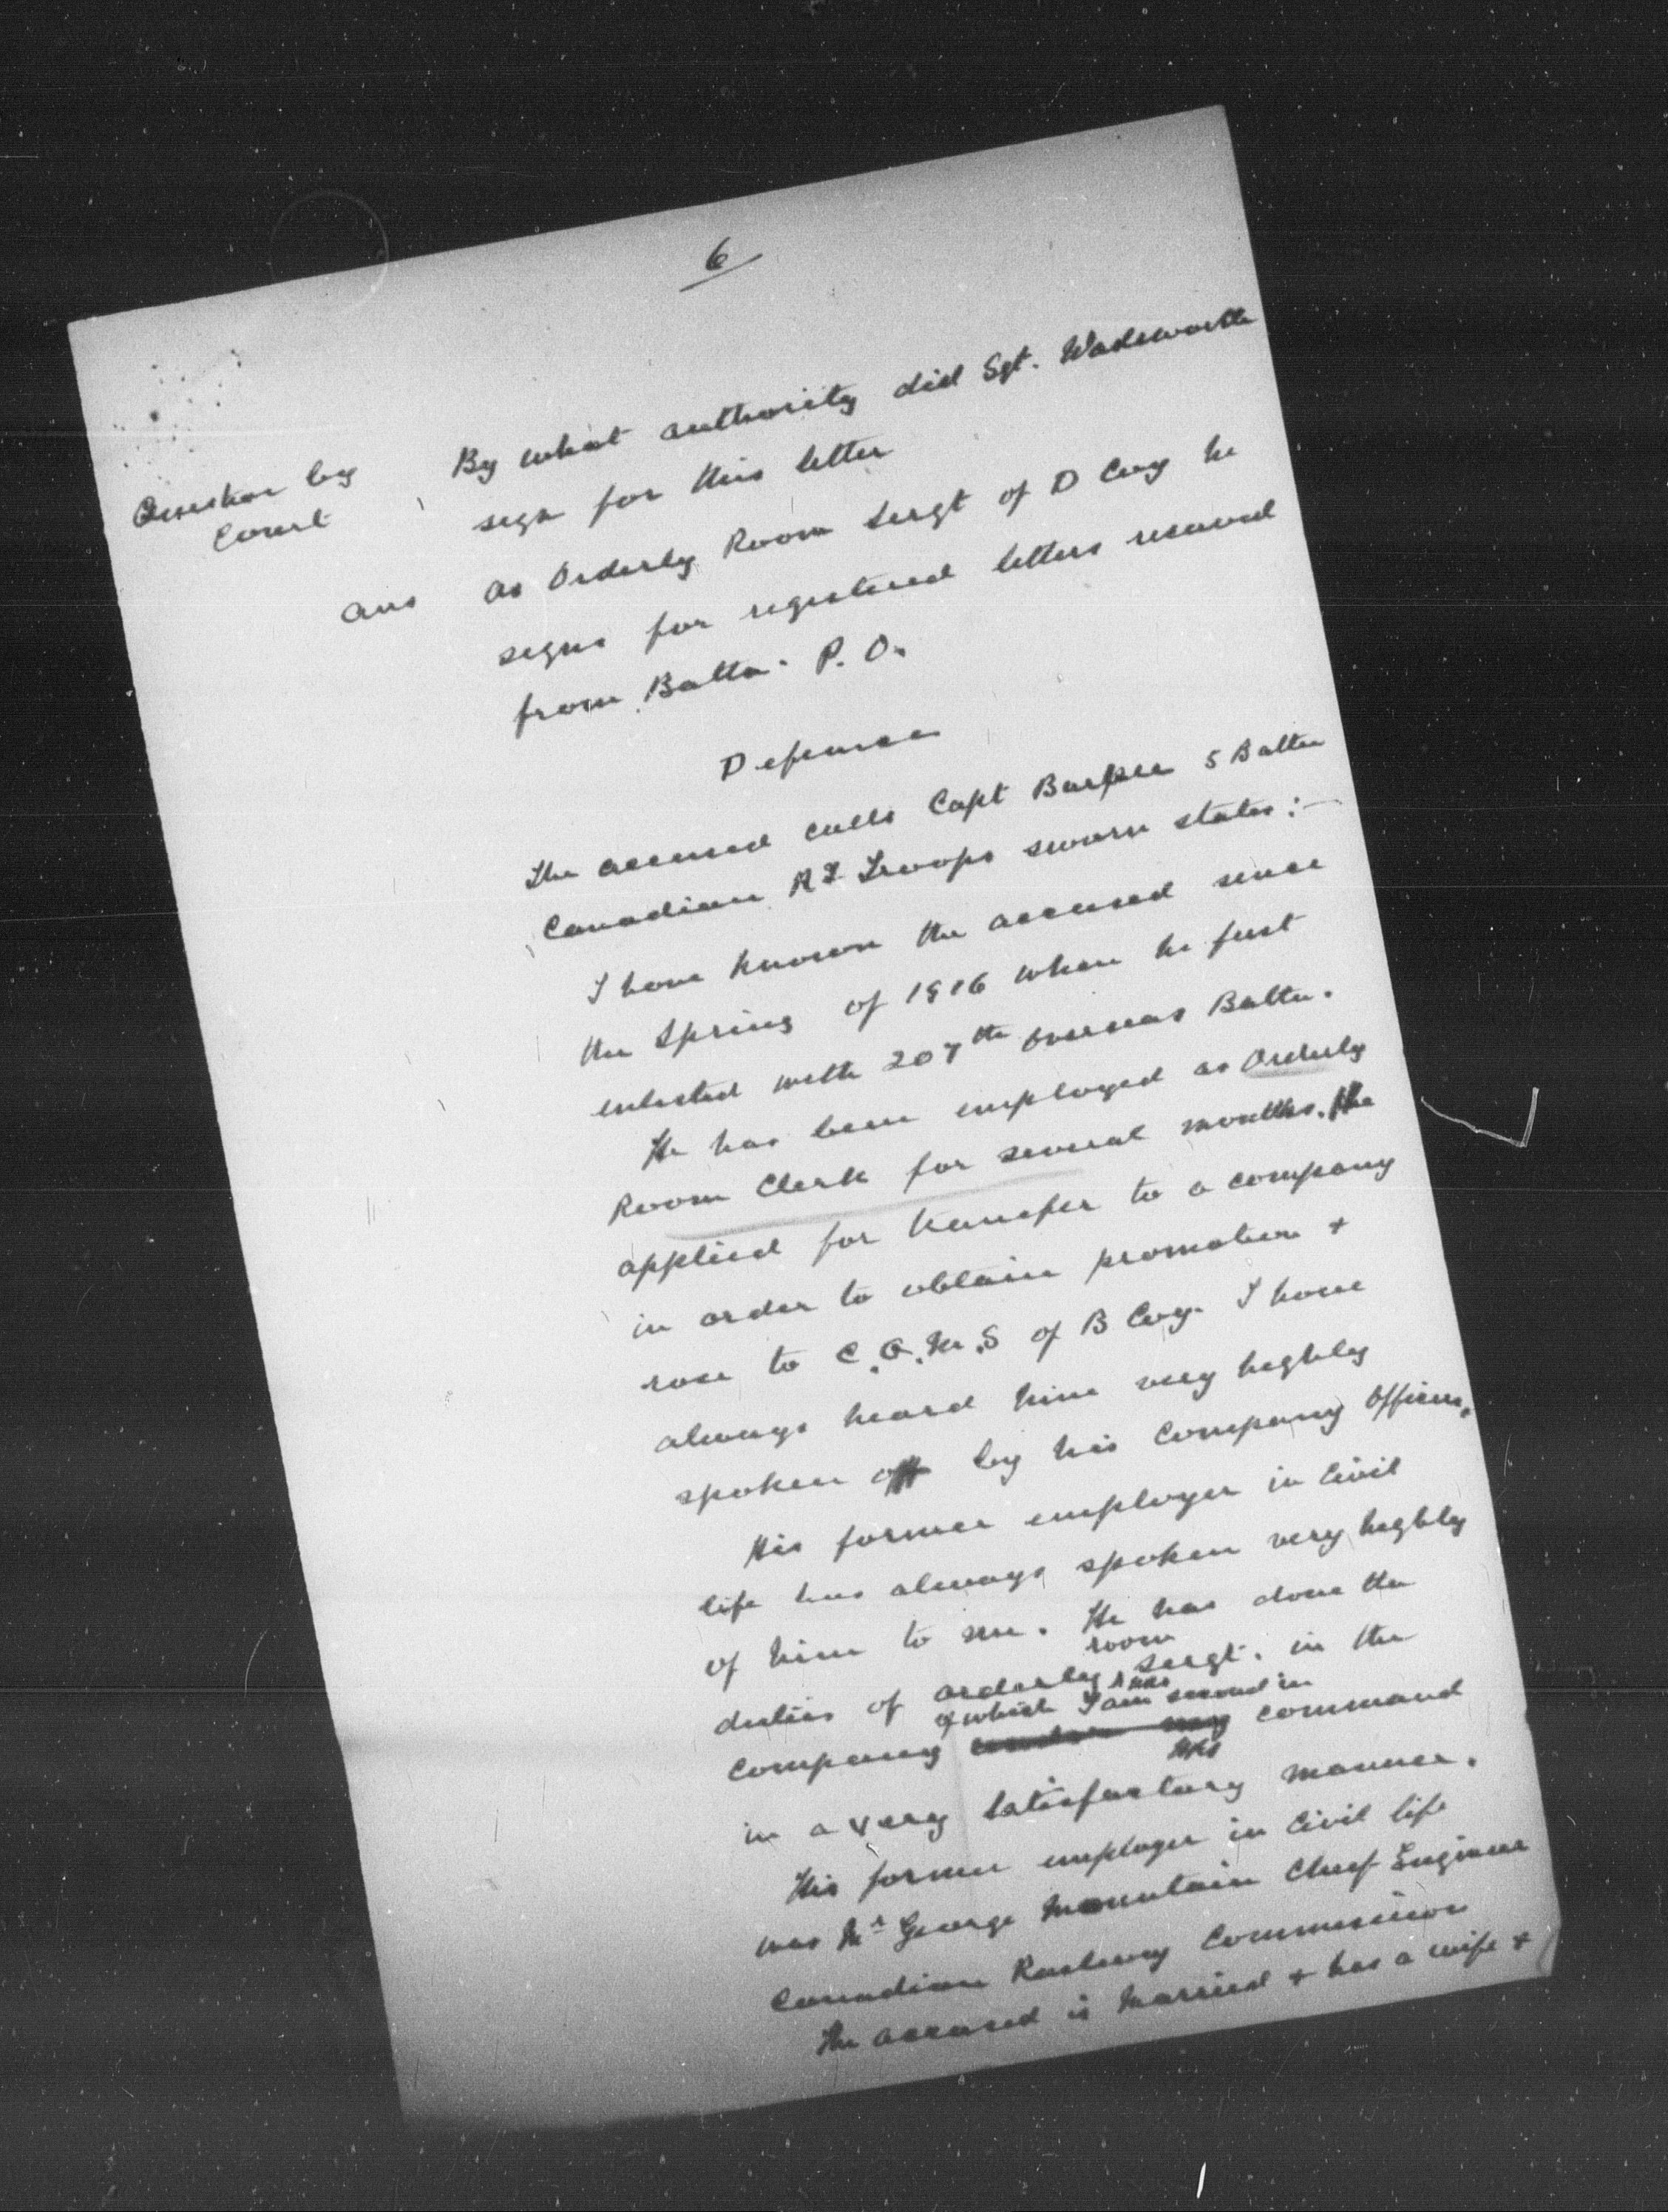 6
Question by Court
By what authority did Sgt. Wadsworth
sign for this letter
Ans As Orderly Room Sergt of D Coy he
signs for registered letters received
from Battn. P. O.
Defence
The accused calls Capt Burpee 5 Battn
Canadian RY Troops sworn states:—
I have known the accused since
the Spring of 1916 when he first
enlisted with 207th Overseas Battn.
He has been employed as Orderly
Room Clerk for several months. He
applied for transfer to a company
in order to obtain promotion +
rose to C.Q.M.S of B Coy. I have
always heard him very highly
spoken off by his Company Officers.
His former employer in Civil
life has always spoken very highly
of him to me. He has done the
duties of orderly room sergt. in the
company of which I am second in command
in a very satisfactory manner.
His former employer in Civil life
was Mr George Mountain Chief Engineer
Canadian Railway Commission
The accused is married + has a wife +